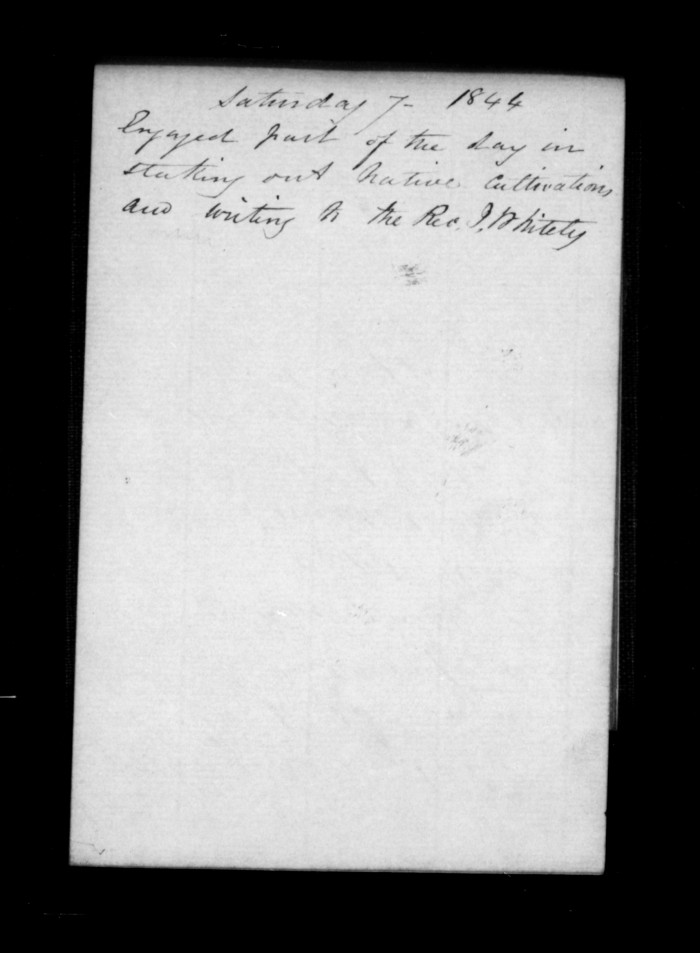 Saturday 7- 1844
Engaged part of the day in
staking out native cultivations
and writing to the Rev. J. Whitely